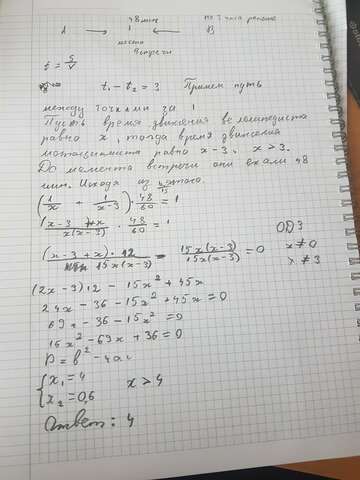 48 мин на 3 часа раньше
A 1 B
место
встречи
t = S/V
t₁ - t₂ = 3 Примем путь
между точками за 1
Пусть время движения велосипедиста
равно x, тогда время движения
мотоциклиста равно x-3, x > 3.
До момента встречи они ехали 48
мин. Исходя из этого.
(1/x + 1/(x-3)) · 48/60 = 1
(x-3+x)/(x(x-3)) · 48/60 = 1
((x-3+x)·12)/(15x(x-3)) - (15x(x-3))/(15x(x-3)) = 0 ОДЗ
x ≠ 0
x ≠ 3
(2x-3)12 - 15x² + 45x
24x - 36 - 15x² + 45x = 0
69x - 36 - 15x² = 0
16x² - 69x + 36 = 0
D = b² - 4ac
{ x₁ = 4
x₂ = 0,6 x > 4
Ответ: 4